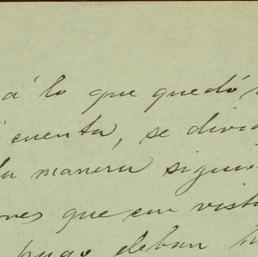 á lo que quedó
cuenta, se divid
la manera sigui
ones que en vist
pago deban h